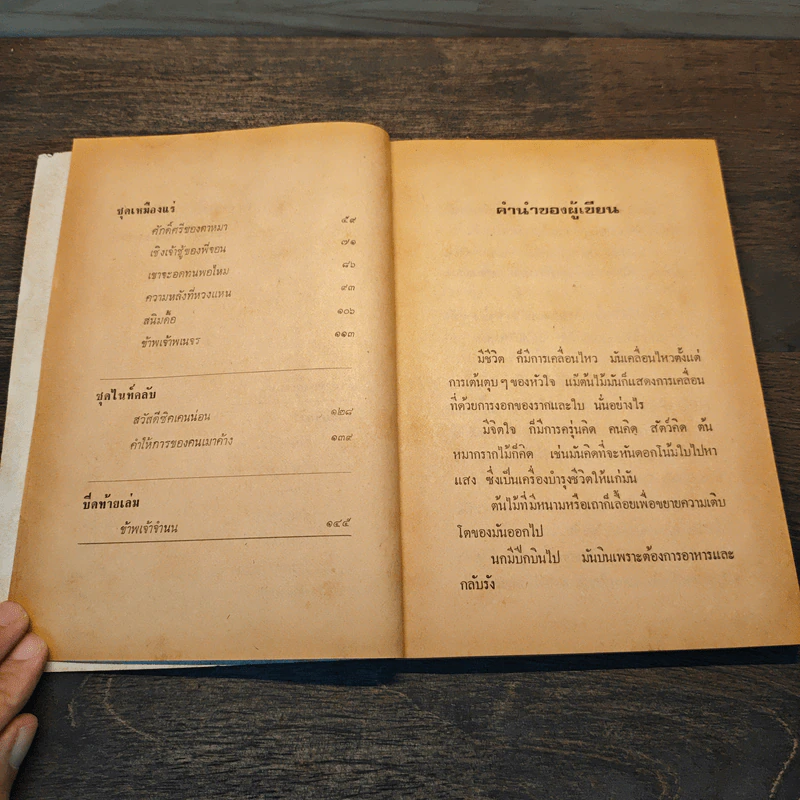 ชุดเหมืองแร่
ศักดิ์ศรีของตาหมา ๕๙
เชิงเจ้าชู้ของพี่จอน ๗๑
เขาจะอดทนพอไหม ๘๖
ความหลังที่หวงแหน ๙๓
สนิมคือ ๑๐๖
ข้าพเจ้าพเนจร ๑๑๓
ชุดไนท์คลับ
สวัสดีซิคเคนน่อน ๑๒๘
คำให้การของคนเมาค้าง ๑๓๙
ปิดท้ายเล่ม
ข้าพเจ้าจำนน ๑๔๕
คำนำของผู้เขียน
มีชีวิต ก็มีการเคลื่อนไหว มันเคลื่อนไหวตั้งแต่
การเต้นตุบๆ ของหัวใจ แม้ต้นไม้มันก็แสดงการเคลื่อน
ที่ด้วยการงอกของรากและใบ นั่นอย่างไร
มีจิตใจ ก็มีการครุ่นคิด คนคิด สัตว์คิด ต้น
หมากรากไม้ก็คิด เช่นมันคิดที่จะหันดอกโน้มใบไปหา
แสง ซึ่งเป็นเครื่องบำรุงชีวิตให้แก่มัน
ต้นไม้ที่มีหนามหรือเถาก็เลื้อยเพื่อขยายความเติบ
โตของมันออกไป
นกมีปีกบินไป มันบินเพราะต้องการอาหารและ
กลับรัง